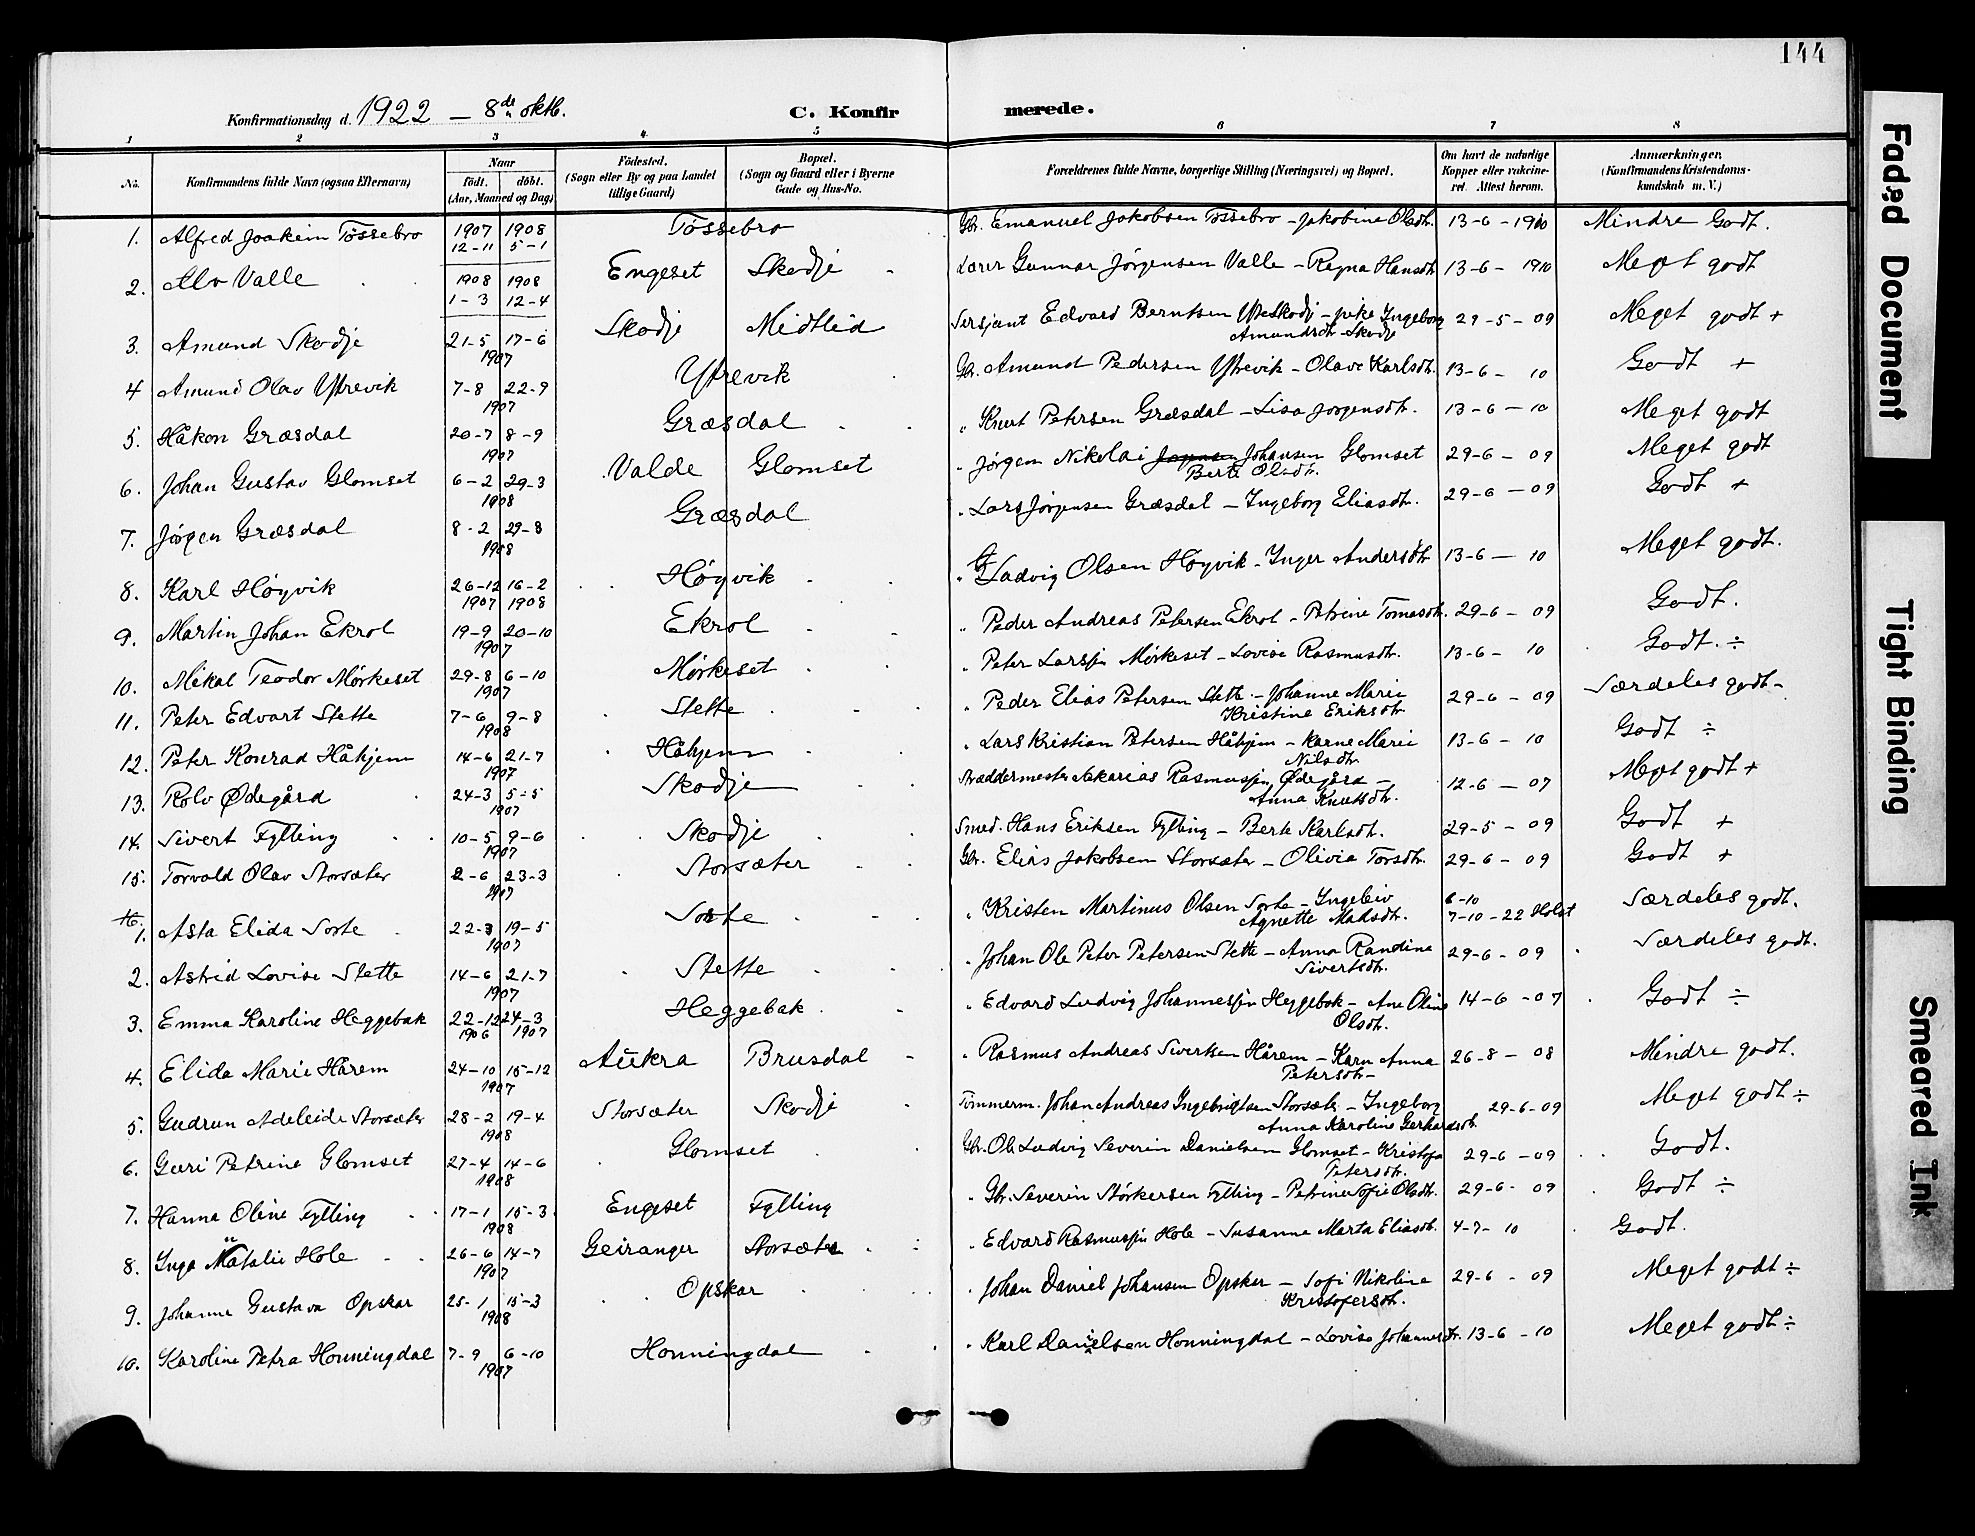 144
Konfirmationsdag d. 1922 — 8de oktb. C. Konfirmerede.
1 2 3 4 5 6 7 8
No. Konfirmandens fulde Navn (ogsaa Efternavn) Naar født. døbt. (Aar, Maaned og Dag) Fødested. (Sogn eller By og paa Landet tillige Gaard) Bopæl. (Sogn og Gaard eller i Byerne Gade og Hus-No. Forældrenes fulde Navne, borgerlige Stilling (Næringsvei) og Bopæl. Om havt de naturlige Kopper eller vakcineret. Attest herom. Anmærkninger. (Konfirmandens Kristendomskundskab m. V.)
1. Alfred Joakim Tøssebro 1907 12-11 1908 5-1 Tøssebro Gbr. Emanuel Jakobsen Tøssebro – Jakobine Olsdtr. 13-6-1910 Mindre Godt.
2. Alv Valle 1908 1-3 1908 12-4 Engeset Skodje Lærer Gunnar Jørgensen Valle – Regna Hansdtr 13-6-1910 Meget godt
3. Amund Skodje 21-5 17-6 1907 Skodje Midtlid Sersjant Edvard Berntsen Ytreskodj – pike Ingeborg Amundsdtr Skodje 29-5-09 Meget godt +
4 Amund Olav Ytrevik 7-8 22-9 1907 Ytrevik Gbr. Amund Pedersen Ytrevik – Olave Karlsdtr. 13-6-10 Godt +
5. Håkon Græsdal 20-7 8-9 1907 Græsdal " Knut Petersen Græsdal – Lisa Jørgensdtr. 13-6-10 Meget godt
6. Johan Gustav Glomset 6-2 29-3 1908 Valde Glomset " Jørgen Nikolai Johansen Glomset Berte Olsdtr. 29-6-09 Meget godt
7. Jørgen Græsdal 8-2 29-8 1908 Græsdal " Lars Jørgensen Græsdal – Ingeborg Eliasdtr. 29-6-09 Godt +
8. Karl Høgvik 26-12 1907 16-2 1908 Høgvik " Ladvig Olsen Høgvik – Inger Andersdtr 13-6-10 Meget godt.
9. Martin Johan Ekrol 19-9 20-10 1907 Ekrol " Peder Andreas Petersen Ekrol – Petrine Tomasdtr. 29-6-09 Godt.
10. Mikal Teodor Mørkeset 29-8 6-10 1907 Mørkeset " Peter Larsen Mørkeset – Lovise Rasmusdtr. 13-6-10 Godt. ÷
11. Peter Edvart Stette 7-6 9-8 1908 Stette " Peder Elias Petersen Stette – Johanne Marie Kristine Eriksdtr 29-6-09 Særdeles godt –
12. Peter Konrad Håhjem 14-6 21-7 1907 Håhjem " Lars Kristian Petersen Håhjem – Karne Marie Nilsdtr 13-6-10 Godt ÷
13. Rolv Ødegård 24-3 5-5 1907 Skodje Skreddermester Sakarias Rasmussen Ødegård – Anna Knutsdtr. 12-6-07 Meget godt +
14. Sivert Fylling 10-5 9-6 1907 Skodje Smed. Hans Eriksen Fylling – Berte Karlsdtr. 29-5-09 Godt +
15. Torvald Olav Storsæter 2-6 23-3 1907 Storsæter Gbr. Elias Jakobsen Storsæter – Olivia Torsdtr. 29-6-09 Godt +
16. 1. Asta Elida Sorte 22-3 19-5 1907 Sorte " Kristen Martinus Olsen Sorte – Ingeleiv Agnette Matsdtr. 6-10 7-10-22 Holst Særdeles godt.
2. Astrid Lovise Stette 14-6 21-7 1907 Stette " Johan Ole Peter Petersen Stette – Anna Randine Sivertsdtr. 29-6-09 Særdeles godt.
3. Emma Karoline Heggebak 22-12 1906 24-3 1907 Heggebak " Edvard Ludvig Johannessen Heggebak – Ane Oline Olsdtr. 14-6-07 Godt ÷
4. Elida Marie Hårem 24-10 15-12 1907 Aukra Brusdal " Rasmus Andreas Sivertsen Hårem – Karn Anna Petersdtr – 26-8-08 Mindre godt.
5. Gudrun Adeleide Storsæter 28-2 19-4 1908 Storsæter Skodje Tømmerm. Johan Andreas Ingebrigtsen Storsæter – Ingeborg Anna Karoline Gerhardsdtr 29-6-09 Meget godt ÷
6. Guri Petrine Glomset 27-4 14-6 1908 Glomset Gbr. Ole Ludvig Severin Danielsen Glomset – Kristofa Petersdtr. 29-6-09 Godt.
7. Hanna Oline Fylling 17-1 15-3 1908 Engeset Fylling " Gbr. Severin Størkersen Fylling – Petrine Sofie Olsdtr. 29-6-09 Godt ÷
8. Inga Natalie Hole 26-6 14-7 1907 Geiranger Storsæter " Edvard Rasmussen Hole – Susanne Marta Eliasdtr. 4-7-10 Godt.
9. Johanne Gustava Opskar 25-1 15-3 1908 Opskar " Johan Daniel Johansen Opskar – Sofi Nikoline Kristofersdtr. 29-6-09 Meget godt ÷
10. Karoline Petra Honningdal 7-9 6-10 1907 Honningdal " Karl Danielsen Honningdal – Lovise Johannesdtr. 13-6-10 Meget godt ÷
Faded Document
Tight Binding
Smeared Ink